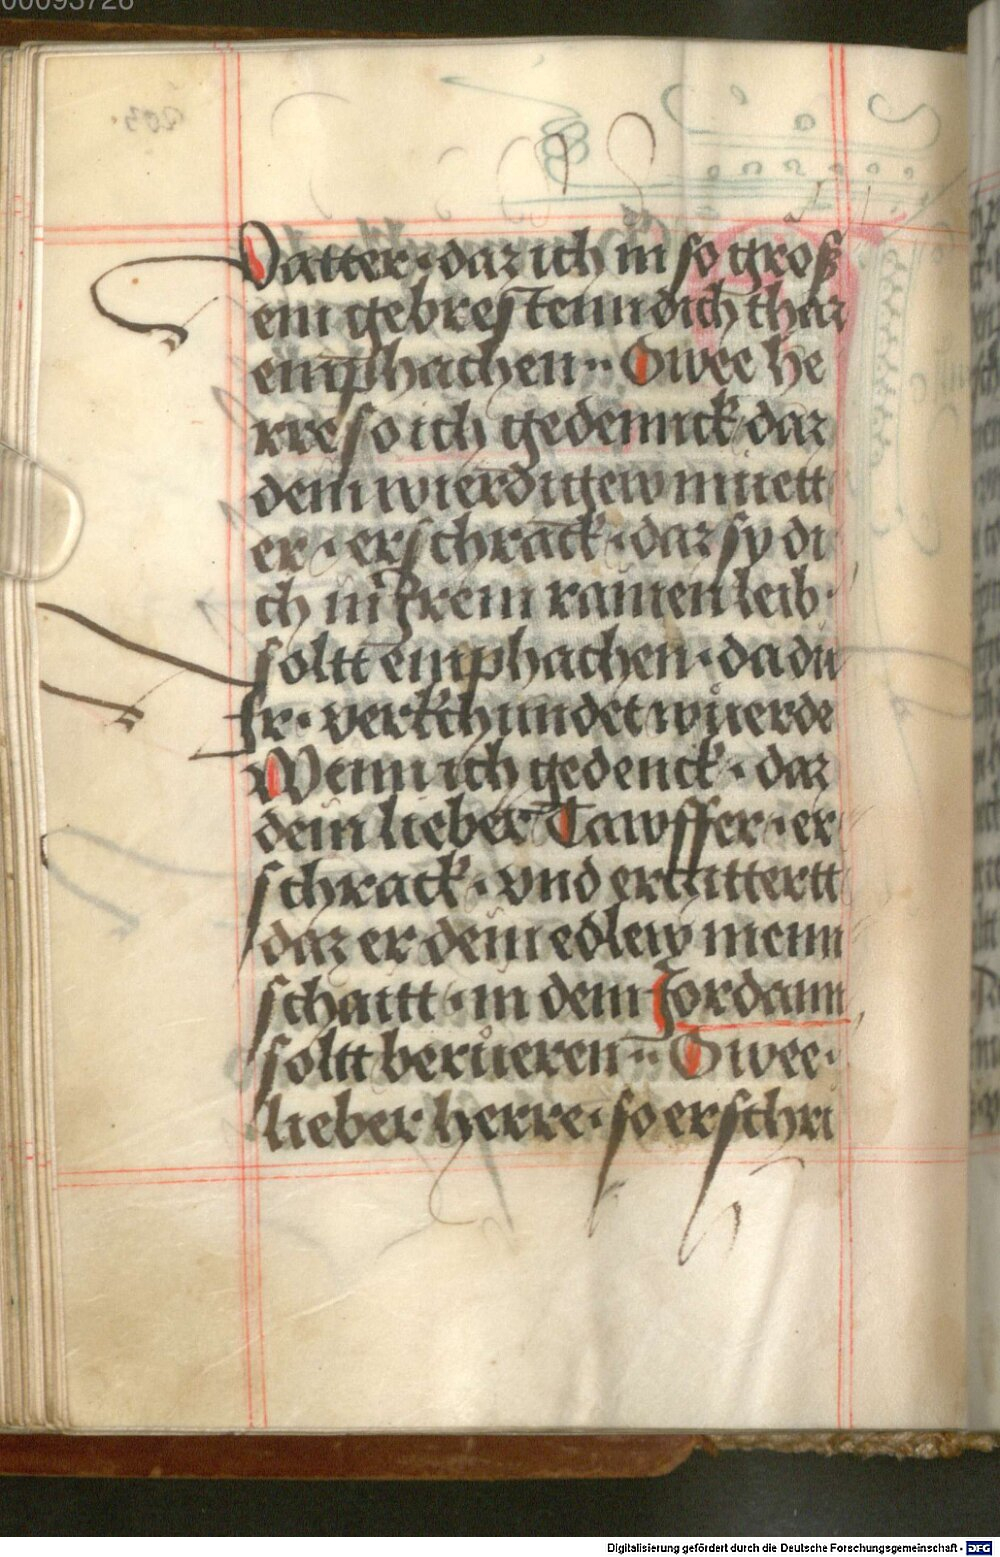 00093728
Vatter · daz ich in so gross
em gebrestenn dich thar
emphachen ·· Owee he
rre so ich gedennck daz
dein wierdigew müett
er · erschrack · daz sy di
ch in Irem rainen leib ·
soltt emphachen · da du
Ir · verkchündet wüerde
Wenn ich gedenck · daz
dein lieber Tawffer · er
schrack · vnd erzittertt
daz er dein edlew menn
schaitt · in dem Jordann
soltt berüeren ·· Owee ·
lieber herre · so erschri
Digitalisierung gefördert durch die Deutsche Forschungsgemeinschaft - DFG